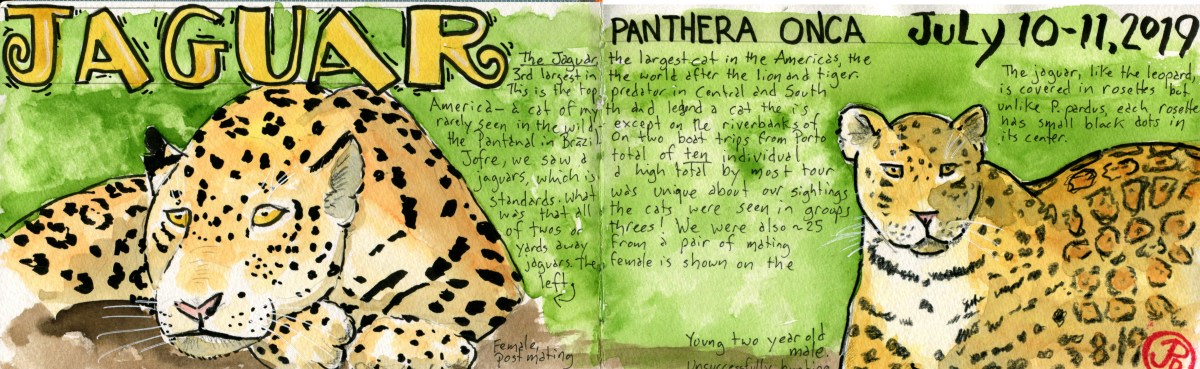 JAGUAR
PANTHERA ONCA
July 10-11, 2019
The Jaguar, the largest cat in the Americas, the
3rd largest in the world after the lion and tiger.
This is the top predator in Central and South
America - a cat of myth and legend a cat the is
rarely seen in the wild except on the riverbanks of
the Pantanal in Brazil. On two boat trips from Porto
Jofre, we saw a total of ten individual
jaguars, which is a high total by most tour
standards. What was unique about our sightings
was that all the cats were seen in groups
of twos or threes! We were also ~25
yards away from a pair of mating
jaguars. The female is shown on the
left
The jaguar, like the leopard,
is covered in rosettes but
unlike P. pardus, each rosette
has small black dots in
its center.
Female,
post mating
Young two year old
male.
Unsuccessfully hunting
5-8-19